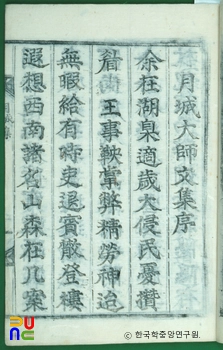 月城大師文集序
余在湖臬適歲大侵民憂攢
王事鞅掌弊精勞神迨
無暇給有時吏退賓散登樓
遐想西南諸名山森在几案
ⓒ 한국학중앙연구원